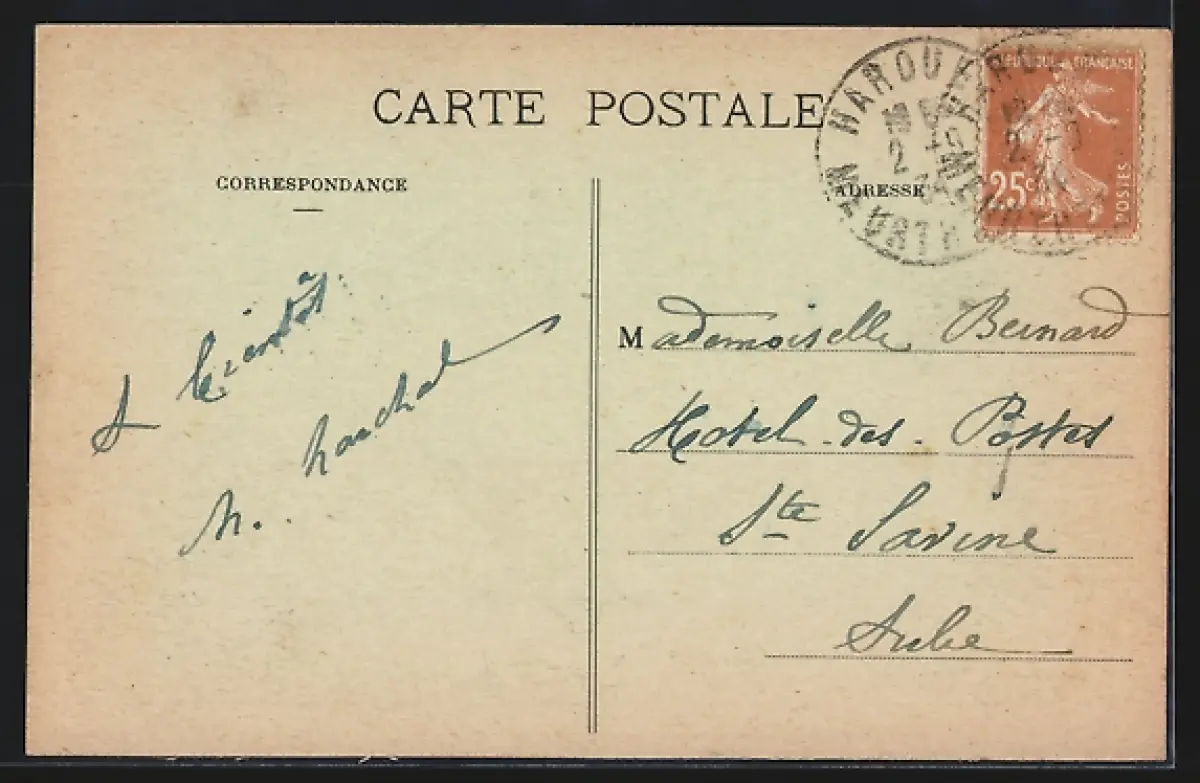 CARTE POSTALE
CORRESPONDANCE
A bientôt
M. Marchal
ADRESSE
RÉPUBLIQUE FRANÇAISE
25c
POSTES
MAROU
MEURTHE
Mademoiselle Bernard
Hotel des Postes
Ste Savine
Aube